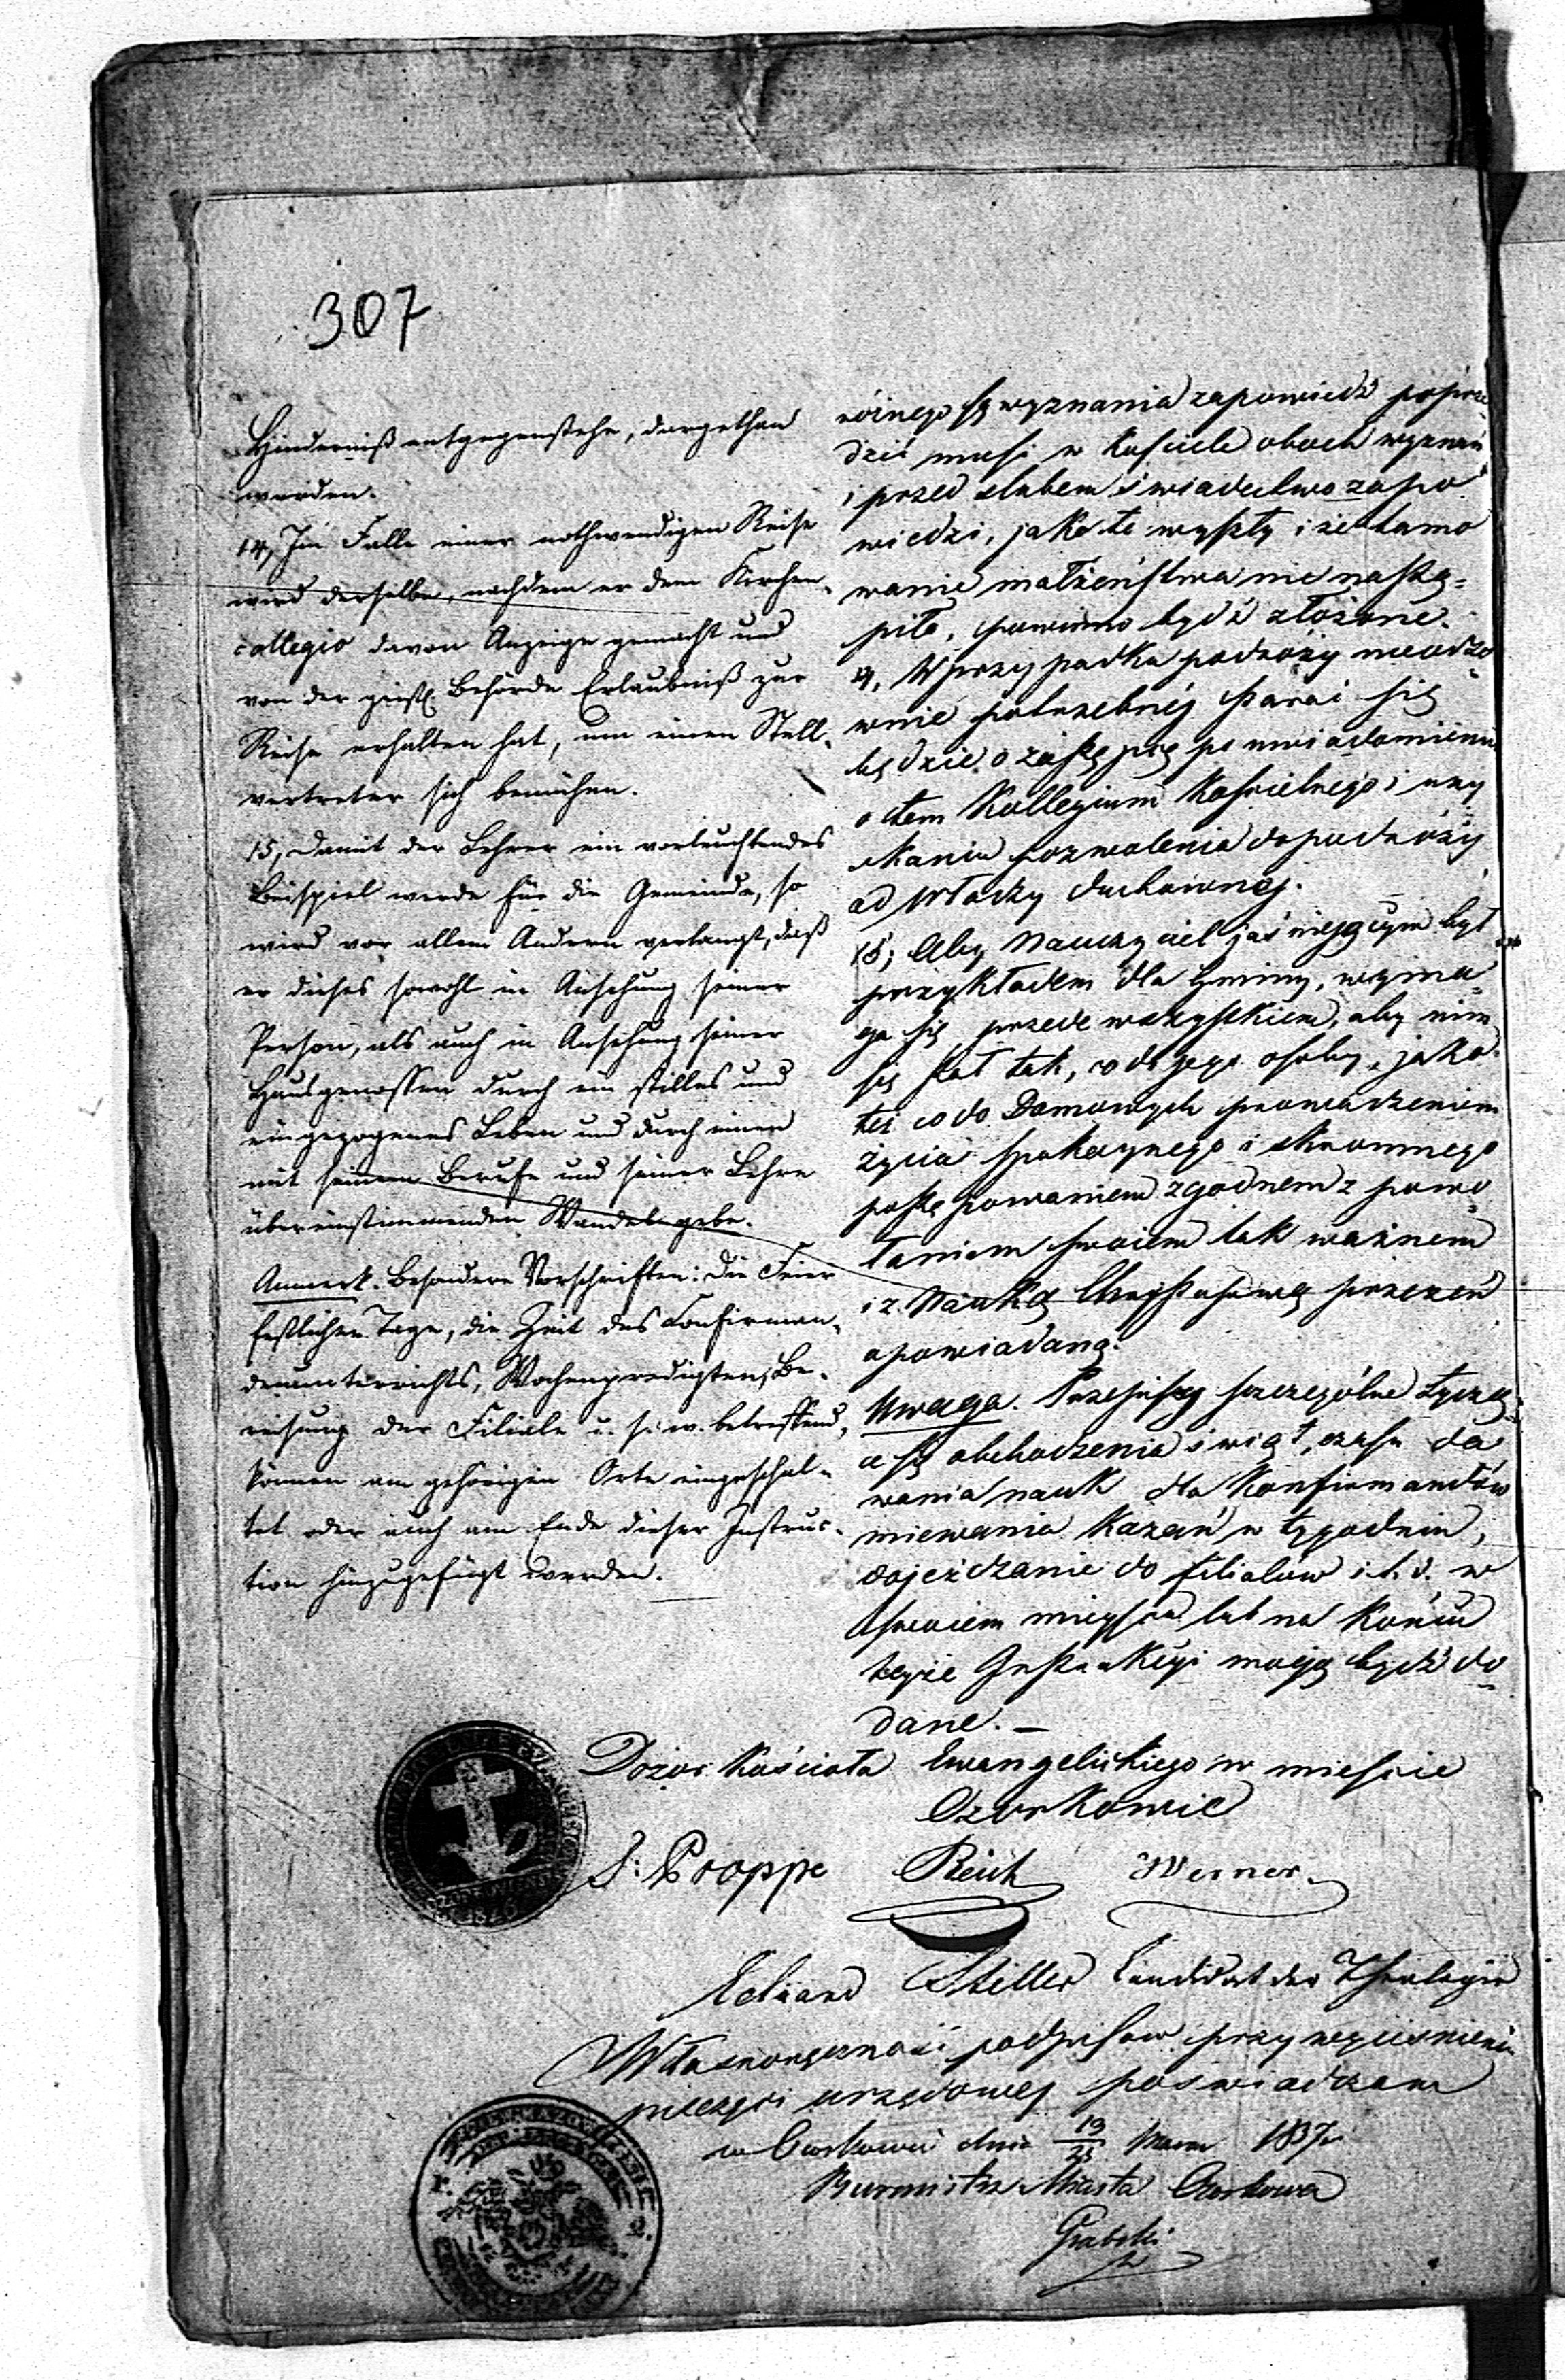 307
Hinderniß entgegenstehe, dargethan
werden.
14, Im Falle einer nothwendigen Reise
wird derselbe, nachdem er dem Kirchen-
collegio davon Anzeige gemacht und
von der geistl. Behörde Erlaubniß zur
Reise erhalten hat, um einen Stell-
vertreter sich bemühen.
15, Damit der Lehrer ein vorleuchtendes
Beispiel werde für die Gemeinde, so
wird vor allem Andern verlangt, daß
er dieses sowohl in Ansehung seiner
Person, als auch in Ansehung seiner
Hausgenossen durch ein stilles und
eingezogenes Leben und durch einen
mit seinem Berufe und seiner Lehre
übereinstimmenden Wandel gebe.
Anmerk. Besondere Vorschriften: die Feier
festlicher Tage, die Zeit des Confirman-
denunterrichts, Wochenpredigten, Be-
reisung der Filiale u. s. w. betreffend,
können am gehörigen Orte eingeschal-
tet oder auch am Ende dieser Instruc-
tion hinzugefügt werden.
różnego są wyznania zapowiedź poprze
dzić musi w Kosciele obuch wyznań
i przed slubem świadectwo zapo
wiedzi, jako te wyszły i że tamo
wanie małżeństwa nie nastą=
piło, powinno bydź złożone.
W przypadku podróży nieodzo=
wnie potrzebnéj starać się
będzie o zastępcę po uwiadomieniu
o tem Kollegium Kościelnego i uzy
skaniu pozwolenia do podróży
od Władzy duchownej.
15, Aby Nauczyciel jaśniejącym był
przykładem dla Gminy, wyma=
ga się przede wszystkiem, aby nim
się stał tak, co do jego osoby, jako
też co do Domowych prowadzeniem
życia spokoynego i skromnego
postępowaniem zgodnem z powo=
łaniem swoiem tak ważnem
i z Nauką Chrystusową przezeń
opowiadaną.
Uwaga. Przepisy szczególne tyczą
ce się obchodzenia świąt, czasu da
wania nauk dla Konfirmandów
miewania Kazań w tygodniu,
dojeżdzanie do filialow i t. d. w
swoiem mieyscu lub na Końcu
teyże Instrukcyi mogą bydź do=
dane. —
Dozor Kościoła Ewangelickiego w mieście
Ozorkowie
J: Proppe Reich Werner.
Eduard Stiller Candidat der Theologie
Własnoręczność podpisow przy wyciśnieniu
pieczęci urzędowej poświadczam
w Ozorkowie dnia 13/25 Marca 1837 r
Burmistrz Miasta Ozorkowa
Grabski